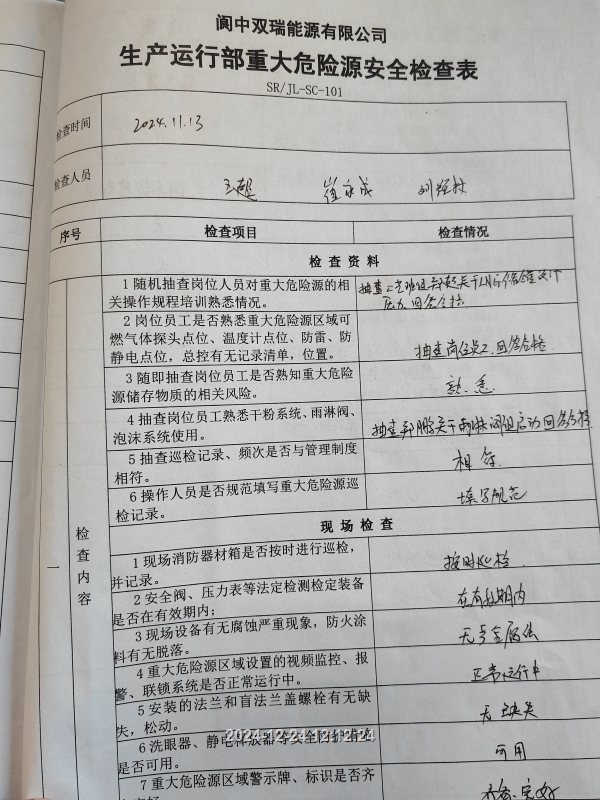 阆中双瑞能源有限公司
生产运行部重大危险源安全检查表
SR/JL-SC-101
检查时间
2024.11.13
检查人员
序号
检查项目
检查情况
检查资料
1 随机抽查岗位人员对重大危险源的相
关操作规程培训熟悉情况。
2 岗位员工是否熟悉重大危险源区域可
燃气体探头点位、温度计点位、防雷、防
静电点位，总控有无记录清单，位置。
抽查岗位员工回答合格
3 随即抽查岗位员工是否熟知重大危险
源储存物质的相关风险。
熟悉
4 抽查岗位员工熟悉干粉系统、雨淋阀、
泡沫系统使用。
5 抽查巡检记录、频次是否与管理制度
相符。
相符
6 操作人员是否规范填写重大危险源巡
检记录。
填写规范
一
检查内容
现场检查
1 现场消防器材箱是否按时进行巡检，
并记录。
按时巡检
2 安全阀、压力表等法定检测检定装备
是否在有效期内；
在有效期内
3 现场设备有无腐蚀严重现象，防火涂
料有无脱落。
4 重大危险源区域设置的视频监控、报
警、联锁系统是否正常运行中。
正常运行中
5 安装的法兰和盲法兰盖螺栓有无缺
失，松动。
无缺失
6 洗眼器、静电释放器等安全防护措施
是否可用。
可用
7 重大危险源区域警示牌、标识是否齐
2024-12-24 12:12:24